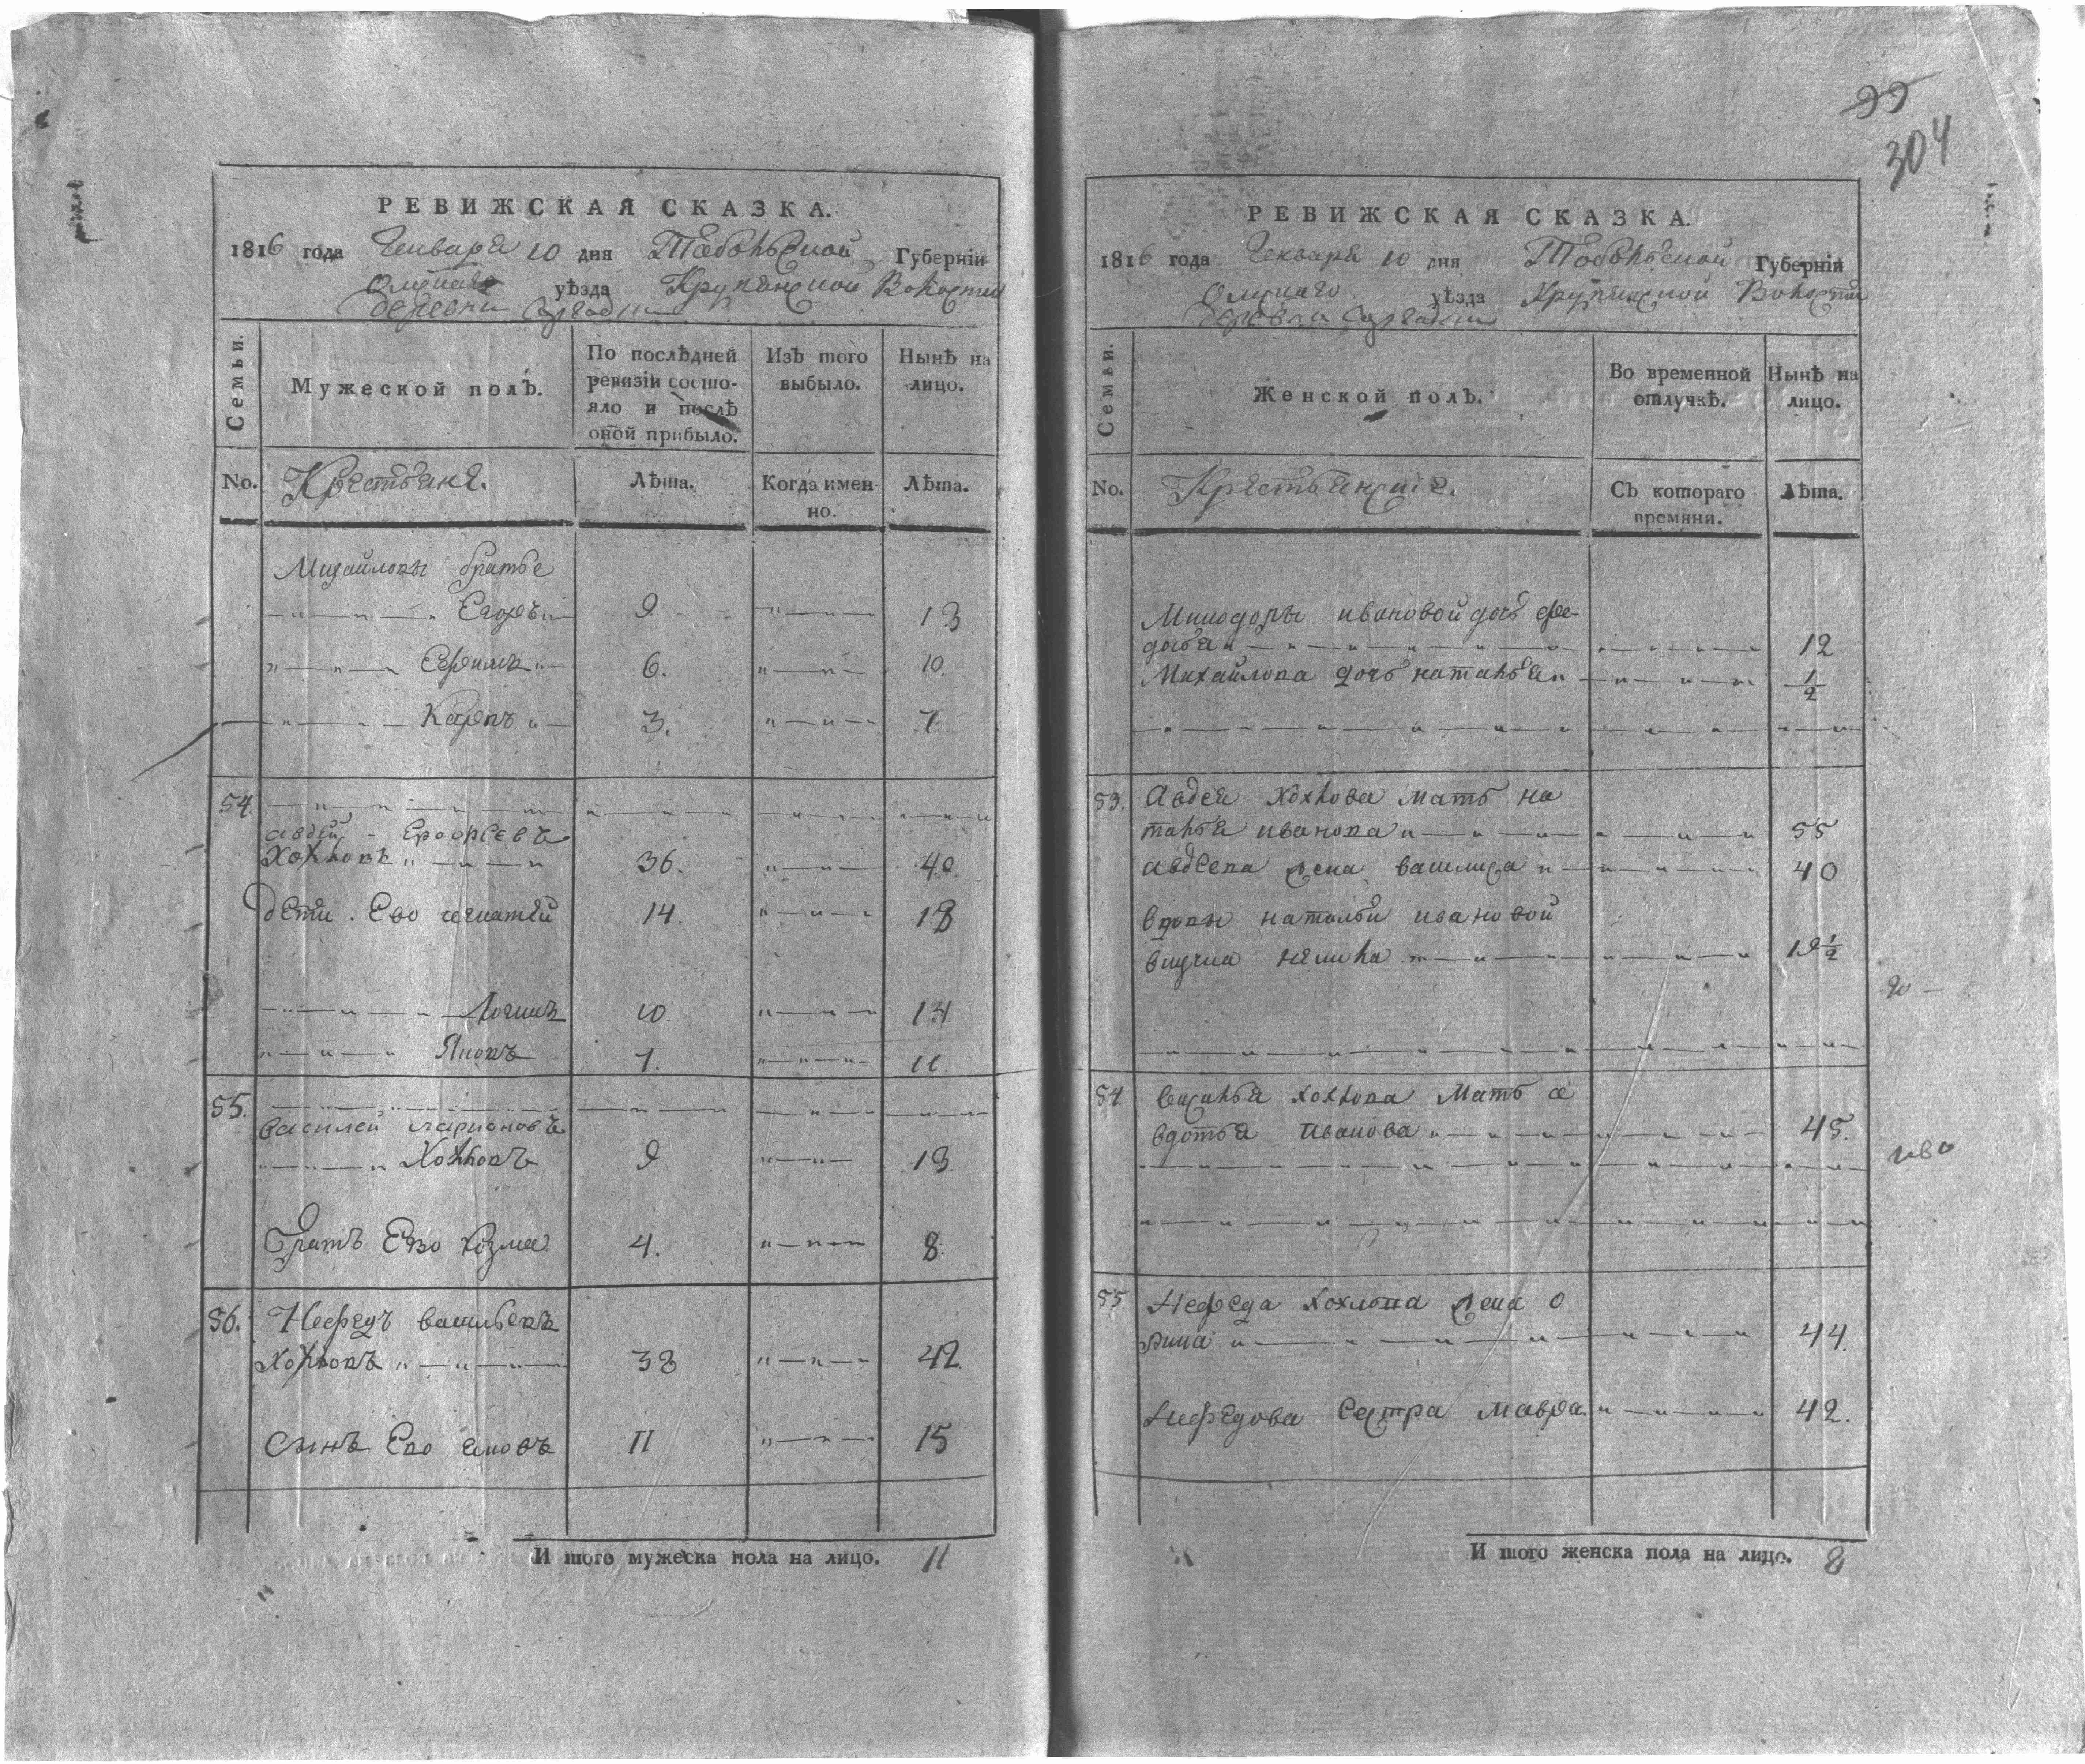 РЕВИЖСКАЯ СКАЗКА.
1816 года Генваря 10 дня Тобольской Губерніи
Омскаго уѣзда Крупянской Волости
деревни
Семьи.
Мужеской полъ.
По послѣдней ревизіи состояло и послѣ оной прибыло.
Изъ того выбыло.
Нынѣ на лицо.
No.
Крестьяне.
Лѣта.
Когда именно.
Лѣта.
Михайловы братье
Егоръ 9 13
Ефимъ 6. 10.
Карпъ 3. 7.
54.
Авдей Егорьевъ
Хохловъ 36. 40.
дети Ево Игнатей 14. 18
Логинъ 10. 14.
Яковъ 7. 11.
55.
Василей Ларионовъ
Хохловъ 9 13.
Братъ Ево Козма 4. 8.
56. Нефедъ Васильевъ
Хохловъ 38 42.
Сынъ Ево Яковъ 11 15
И того мужеска пола на лицо. 11
99
304
РЕВИЖСКАЯ СКАЗКА.
1816 года Генваря 10 дня Тобольской Губерніи
Омскаго уѣзда Крупянской Волости
деревни
Семьи.
Женской полъ.
Во временной отлучкѣ.
Нынѣ на лицо.
No.
Крестьянские.
Съ котораго времяни.
Лѣта.
Ивановой дочь Фе-
досья 12
Михайлова дочь Наталья 1/2
53. Авдея Хохлова мать На
талья Иванова 55
Авдеева жена Василиса 40
вдовы Натальи Ивановой
внучка 19 1/2
54 Василья Хохлова Мать А
вдотья Иванова 45.
55 Нефеда Хохлова жена О
рина 44.
Нефедова Сестра Мавра 42.
И того женска пола на лицо. 8